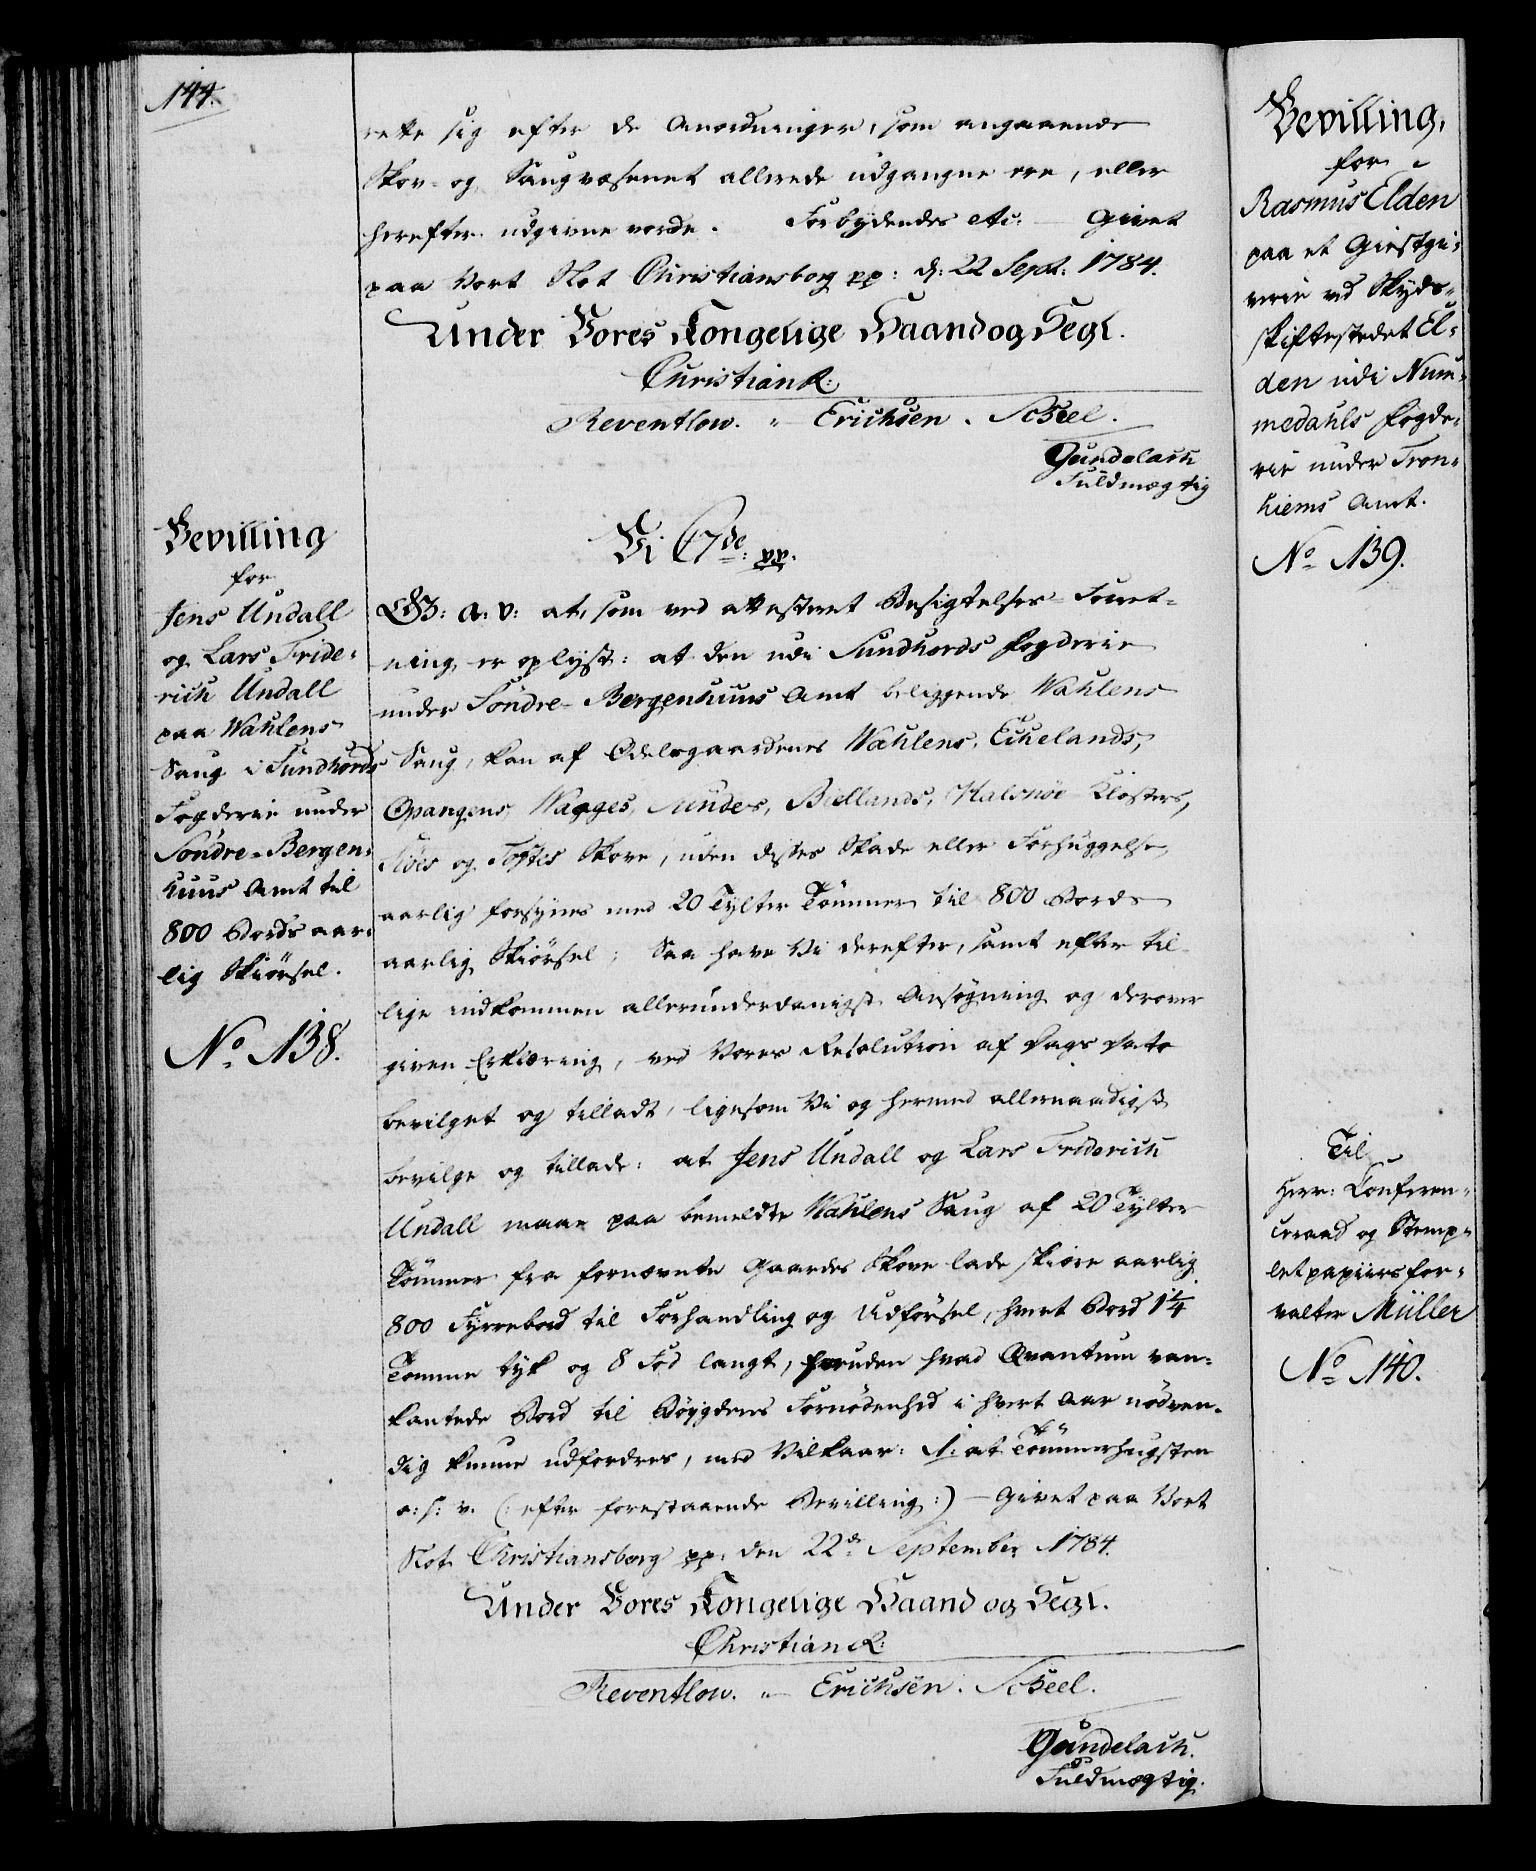 144.
rette sig efter de Anordninger, som angaaende
Skov- og Saugvæsenet allerede udgangne ere, eller
herefter udgivne vorde. Forbydendes etc: — Givet
paa Vort Slot Christiansborg pp: d: 22 Sept: 1784.
Under Vores Kongelige Haand og Segl.
Christian R:
Reventlow. " Erichsen. Scheel.
Gundelach
Fuldmægtig
Bevilling
for
Jens Undall
og Lars Fride-
rich Undall
paa Wahlens
Saug i Sundhords
Fogderie under
Söndre-Bergen-
huus Amt til
800 Bords aar-
lig Skiörsel.
No. 138.
Vi C7de: pp.
G: a: v: at, som ved attesteret Besigtelses-Forret-
ning er oplyst: at den udi Sundhords Fogderie
under Söndre-Bergenhuus Amt beliggende Wahlens
Saug, kan af Odelsgaardenes Wahlens, Eichelands,
Opangens, Wagges, Biellands, Halsnöe Klosters,
og Toftes Skove, uden disses Skade eller Forhuggelse,
aarlig forsynes med 20 Tylter Tömmer til 800 Bords
aarlig Skiörsel; Saa have Vi derefter, samt efter til-
lige indkommen allerunderdanigst Ansögning og derover
given Erklæring, ved Vores Resolution af Dags Dato
bevilget og tilladt, ligesom Vi og hermed allernaadigst
bevilge og tillade: at Jens Undall og Lars Friderich
Undall maae paa bemeldte Wahlens Saug af 20 Tylter
Tömmer fra fornævnte Gaardes Skove lade skiöre aarlig
800 Fyrrebord til Forhandling og Udförsel, hvert Bord 1¼
Tomme tyk og 8 Fod langt, foruden hvad Qvantum van-
kantede Bord til Böygdens Fornödenhed i hvert Aar nödven-
dig kunne udfordres, med Vilkaar: 1: at Tömmerhugsten
o: s: v. (: efter forestaaende Bevilling:) — Givet paa Vort
Slot Christiansborg pp: den 22de September 1784.
Under Vores Kongelige Haand og Segl.
Christian R:
Reventlow. " Erichsen. Scheel.
Gundelach.
Fuldmægtig.
Bevilling,
for
Rasmus Elden
paa et Giestgi-
verie ved Skyds-
skiftestedet El-
den udi Num-
medahls Fogde-
rie under Tron-
hiems Amt.
No. 139.
Til
Herr: Conferen-
ceraad og Stemp-
letpapiirsfor-
valter Müller
No. 140.